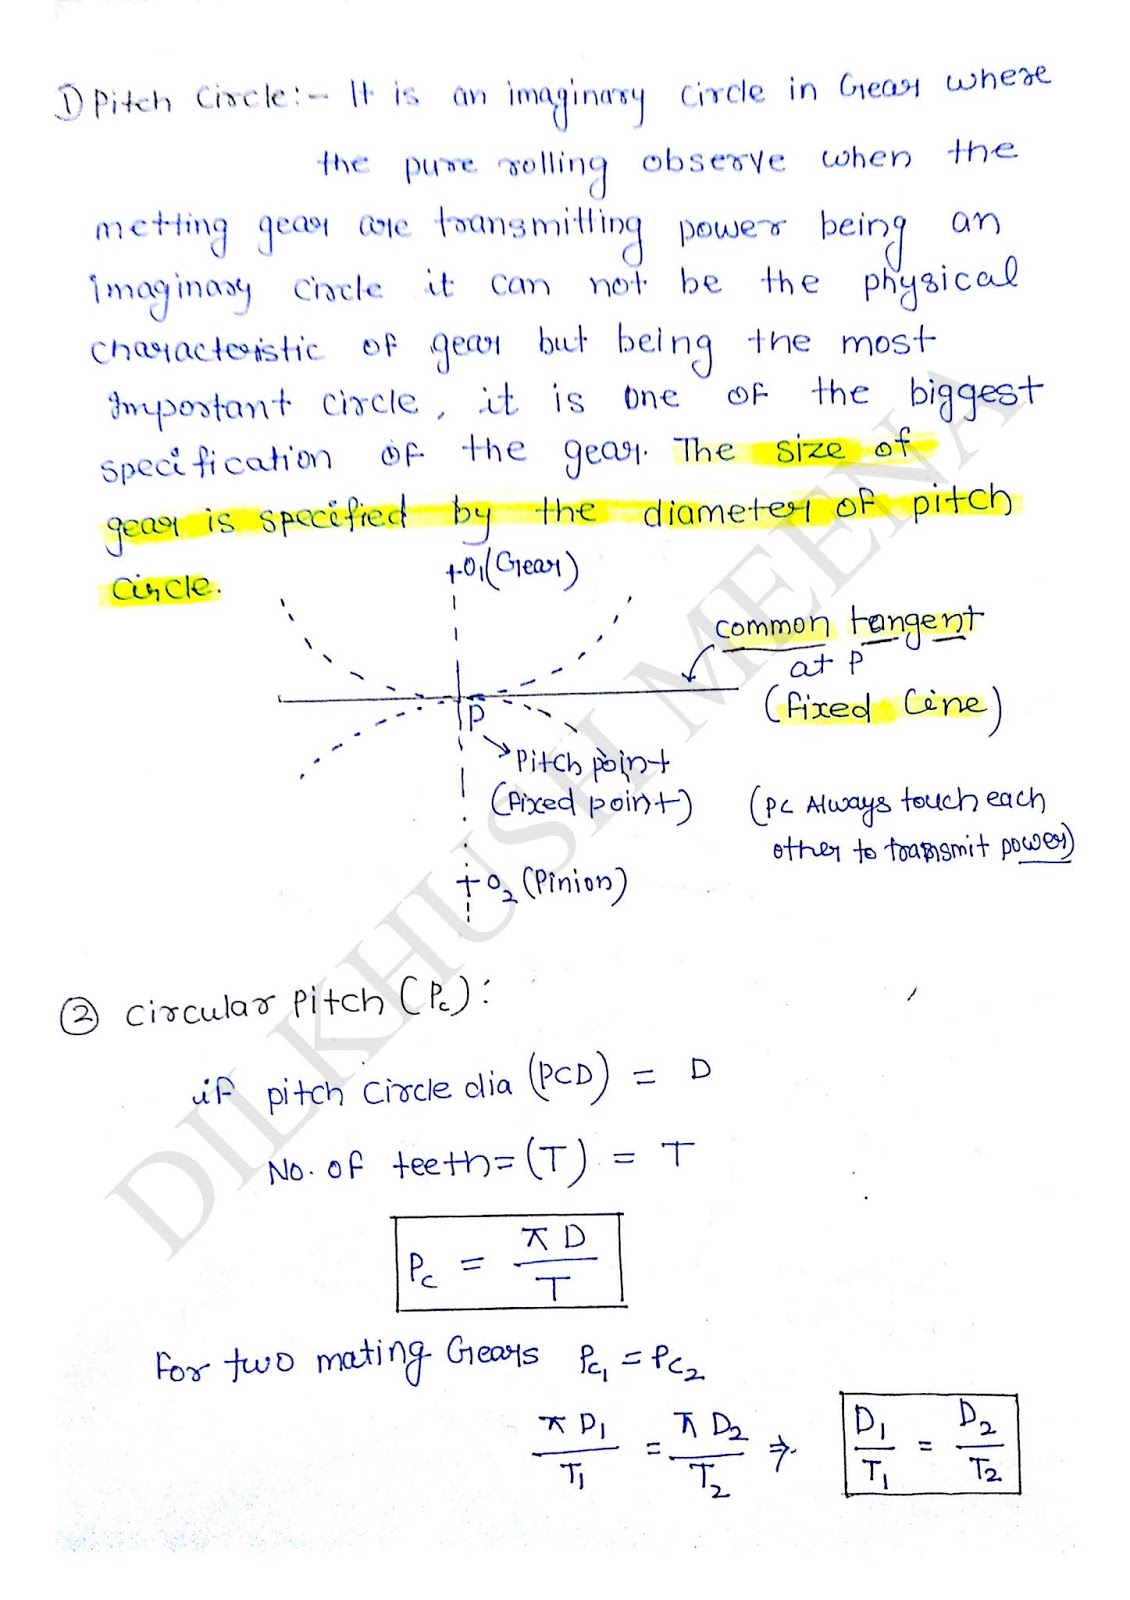 1) Pitch Circle:- It is an imaginary circle in Gear where
the pure rolling observe when the
metting gear are transmitting power being an
imaginary circle it can not be the physical
characteristic of gear but being the most
Important circle, it is one of the biggest
specification of the gear. The size of
gear is specified by the diameter of pitch
circle.
+O₁(Gear)
common tangent
at P
(fixed line)
P
Pitch point
(fixed point)
(PC Always touch each
other to transmit power)
+ O₂ (Pinion)
② Circular Pitch (Pc):
if pitch circle dia (PCD) = D
No. of teeth = (T) = T
Pc = πD / T
For two mating Gears Pc₁ = Pc₂
πD₁ / T₁ = πD₂ / T₂ ⇒ D₁ / T₁ = D₂ / T₂
DILKHUSH MEENA